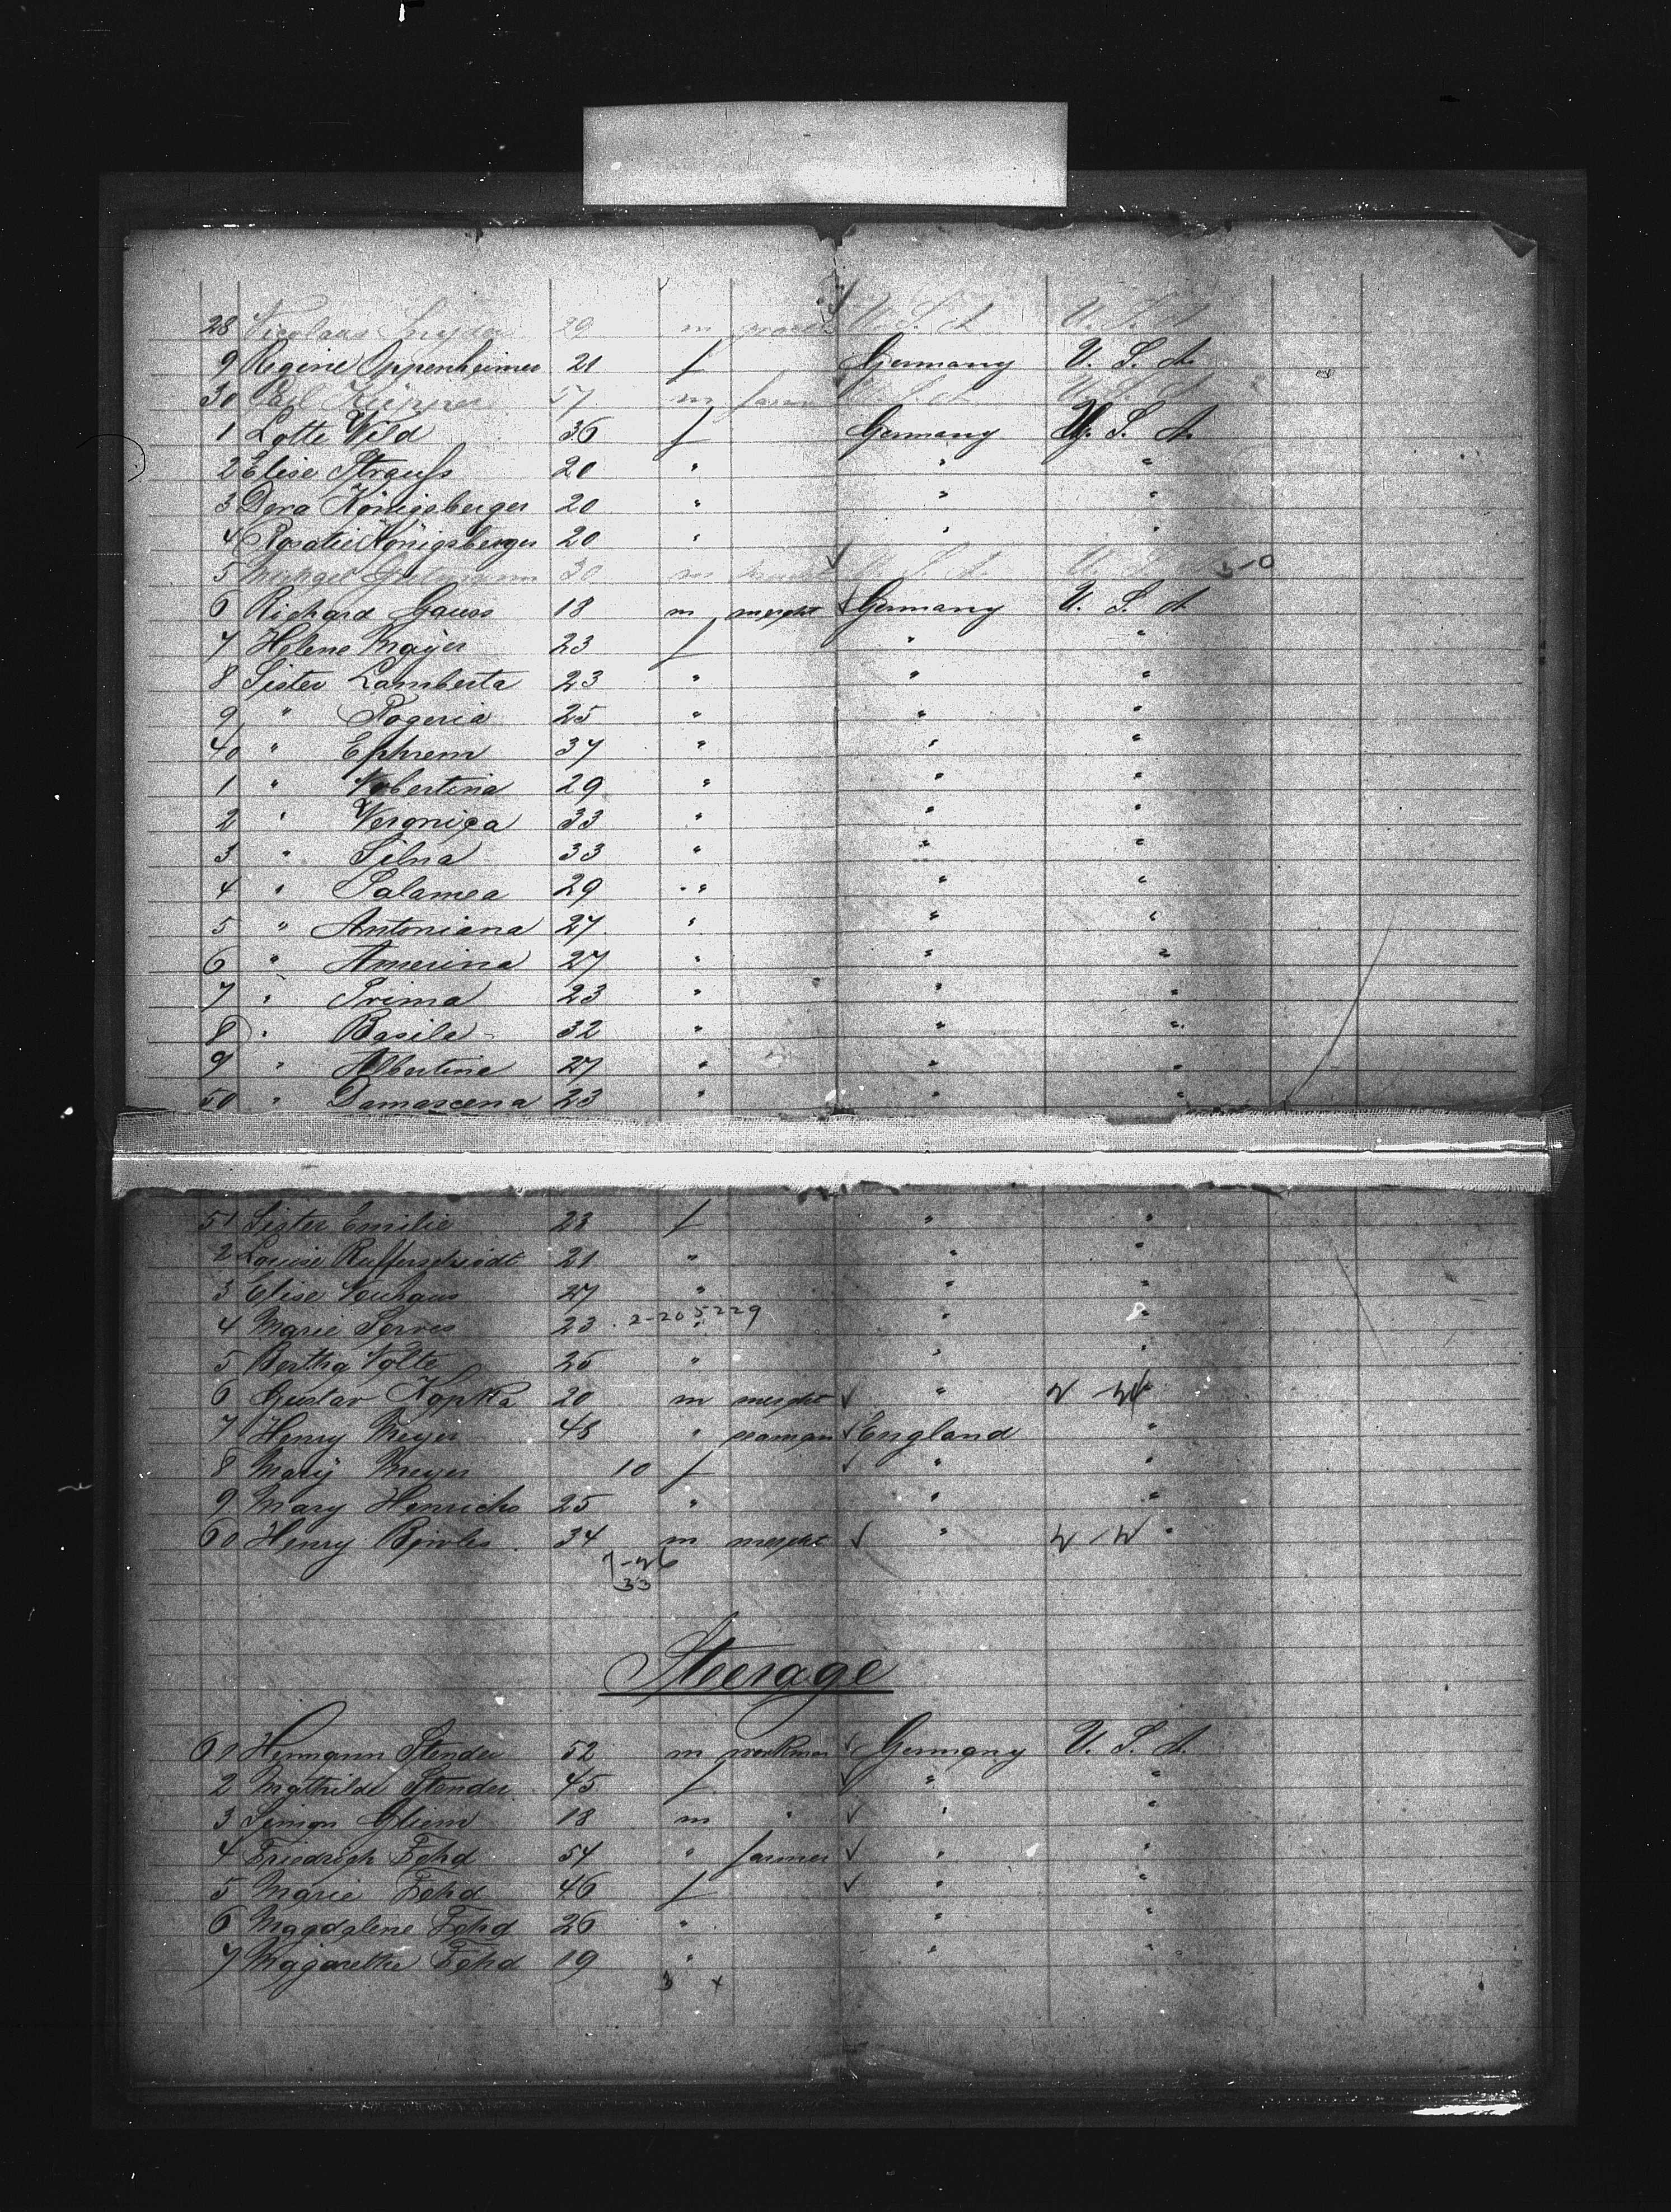 28 Nicolaus Snyder 29 m U. S. A U. S. A
9 Regine Oppenheimer 21 f Germany U. S. A.
30 57 m farm U. S. A U. S. A
1 Lotte Wild 36 f Germany U. S. A.
2 Elise Strauss 20 " " "
3 Dora Königsberger 20 " " "
4 Rosalie Königsberger 20 " " "
5 30 m U. S. A. U. S. A 5-0
6 Richard Gauss 18 m mercht Germany U. S. A
7 Helene Mayer 23 f " "
8 Sister Lamberta 23 " " "
9 " Rogeria 25 " " "
40 " Ephrem 37 " " "
1 " 29 " " "
2 " Veronica 33 " " "
3 " Silna 33 " " "
4 " Salamea 29 " " "
5 " Antoniana 27 " " "
6 " Amerina 27 " " "
7 " Prima 23 " " "
8 " Basila 32 " " "
9 " Albertine 27 " " "
50 " Damascena 23 " " "
51 Sister Emilie 23 f " "
2 Louise 21 " " "
3 Elise Neuhaus 27 " " "
4 Marie Serves 23 2-205229 " " "
5 Bertha Nolte 25 " " "
6 Gustav Kopka 20 m mercht " "
7 Henry Meyer 48 " seaman England "
8 Mary Meyer 10 f " "
9 Mary Henrichs 25 " " "
60 Henry 34 m mercht " "
7-26
33
Steerage
61 Hermann Stender 52 m workman Germany U. S. A.
2 Mathilde Stender 45 f " "
3 Simon Gliem 18 m " " "
4 Friedrich Fehd 54 " farmer " "
5 Marie Fehd 46 f " "
6 Magdalene Fehd 26 " " "
7 Margarethe Fehd 19 " " "
3 x